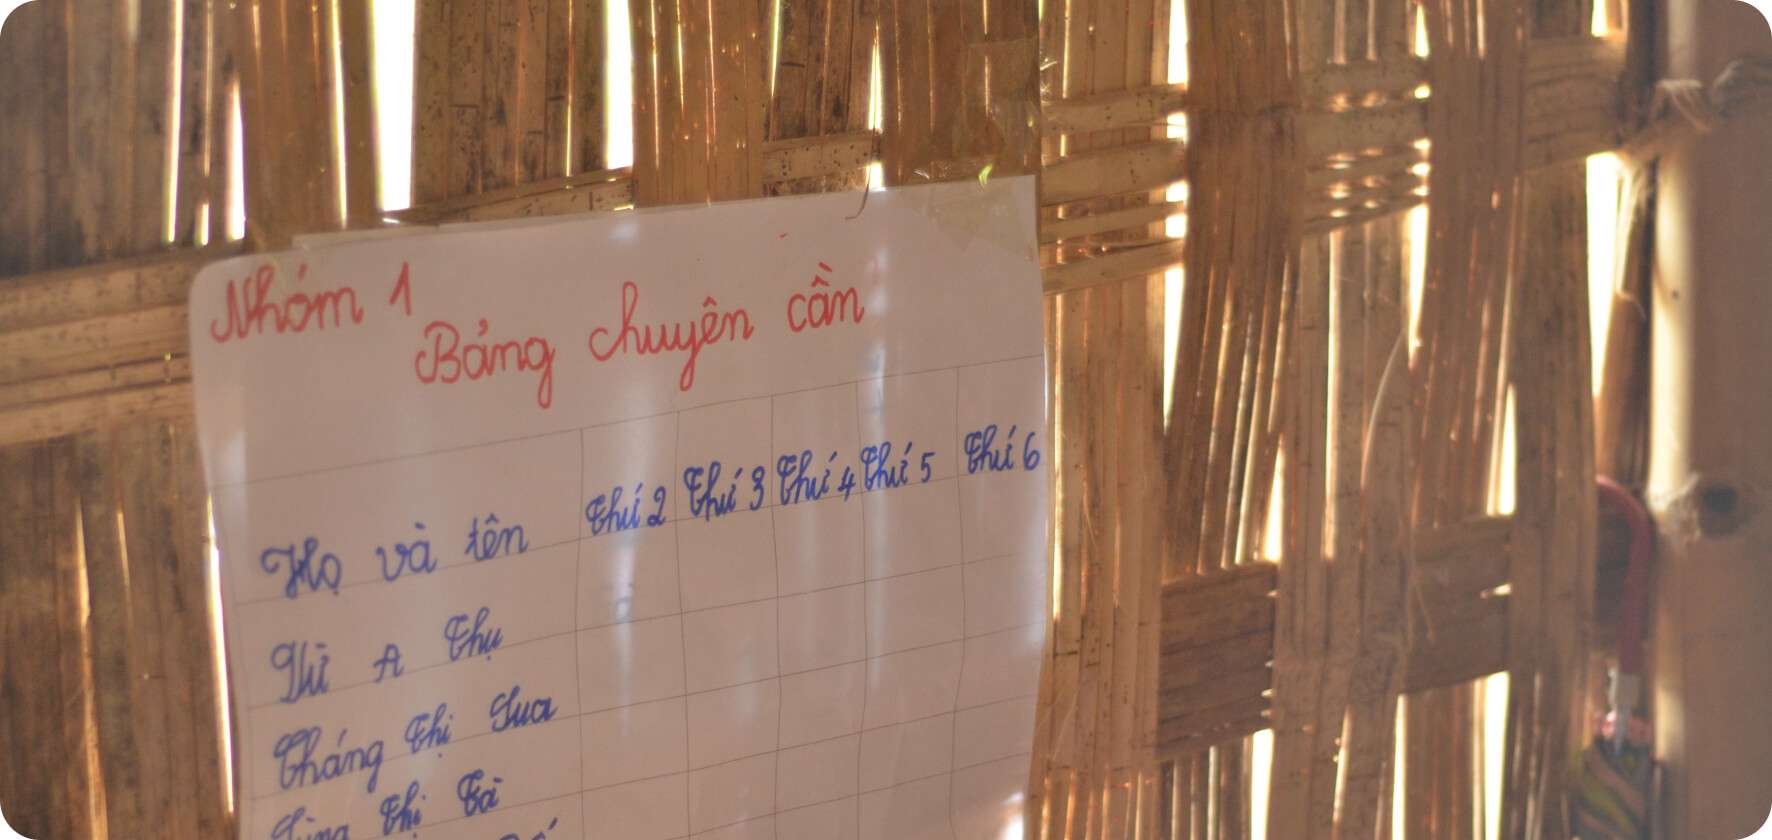 Nhóm 1
Bảng chuyên cần
Họ và tên Thứ 2 Thứ 3 Thứ 4 Thứ 5 Thứ 6
A Thụ
Tháng Thị Sua
Thị